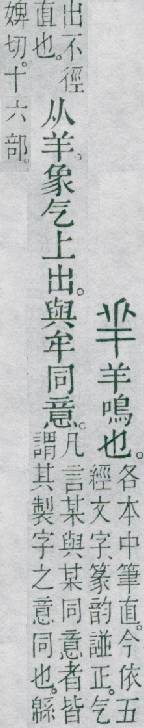 羋羊鳴也。
各本中筆直。今依五
經文字、篆韵譜正。气
出不徑
直也。
从羊、象气上出。與牟同意。
凡言某與某同意者皆
謂其製字之意同也。緜
婢切。十六部。